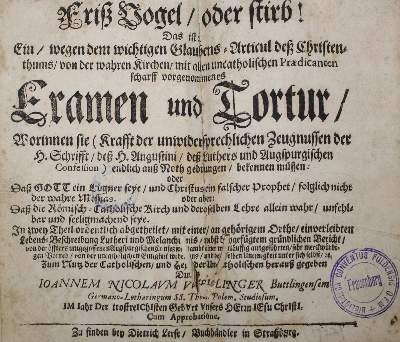 Friß Vogel / oder stirb!
Das ist:
Ein / wegen dem wichtigen Glaubens-Articul deß Christen-
thums / von der wahren Kirchen / mit allen uncatholischen Prædicanten
scharff vorgenommenes
Examen und Tortur /
Worinnen sie (Krafft der unwidersprechlichen Zeugnussen der
H. Schrifft / deß H. Augustini / deß Luthers und Augspurgischen
Confession) endlich auß Noth gedrungen / bekennen müssen:
oder
Daß GOTT ein Lügner seye / und Christus ein falscher Prophet / folglich nicht
der wahre Messias.
oder aber:
Daß die Römisch-Catholische Kirch und derselben Lehre allein wahr / unfehl-
bar und seeligmachend seye.
In zwey Theil ordentlich abgetheilet / mit einer / an gehörigem Orthe / einverleibten
Lebens-Beschreibung Lutheri und
gründlichen Bericht /
von der
Zum Nutz der Catholischen / und
catholischen herauß gegeben
IOANNEM NICOLAUM
Buttlingensem
Germano-Lotharingum SS. Theol. Polem. Studiosum,
IM Iahr Der
GebVrt Vnsers HErrn IEsu ChrIstI.
Cum Approbatione.
Zu finden bey Dietrich Lerse / Buchhändler in Straßburg.
CONVENTUS